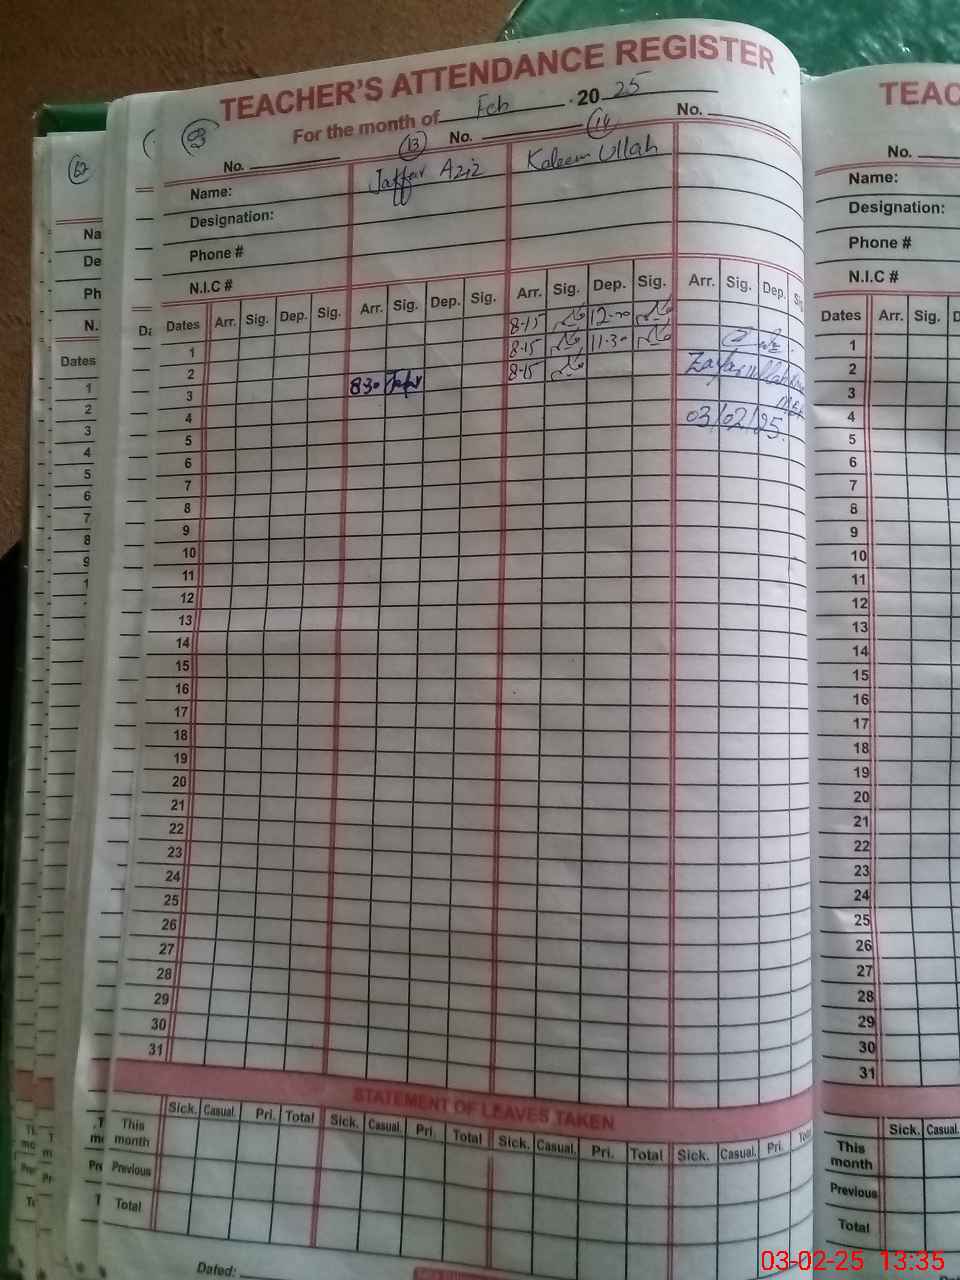 TEACHER'S ATTENDANCE REGISTER
For the month of Feb 2025
03
No. (13) No. (14) No.
Name: Jaffar Aziz Kaleem Ullah
Designation:
Phone #
N.I.C #
Dates Arr. Sig. Dep. Sig. Arr. Sig. Dep. Sig. Arr. Sig. Dep. Sig. Arr. Sig. Dep.
1 8-15 12-00
2 8-15 11-30
3 8-30 8-15
Zafarullah
03/02/25
4
5
6
7
8
9
10
11
12
13
14
15
16
17
18
19
20
21
22
23
24
25
26
27
28
29
30
31
STATEMENT OF LEAVES TAKEN
Sick. Casual. Pri. Total Sick. Casual. Pri. Total Sick. Casual. Pri. Total Sick. Casual. Pri. Total
This month
Previous
Total
Dated:
62
Na
De
Ph
N.
Dates
1
2
3
4
5
6
7
8
9
TEAC
No.
Name:
Designation:
Phone #
N.I.C #
Dates Arr. Sig. D
1
2
3
4
5
6
7
8
9
10
11
12
13
14
15
16
17
18
19
20
21
22
23
24
25
26
27
28
29
30
31
Sick. Casual.
This month
Previous
Total
03-02-25 13:35